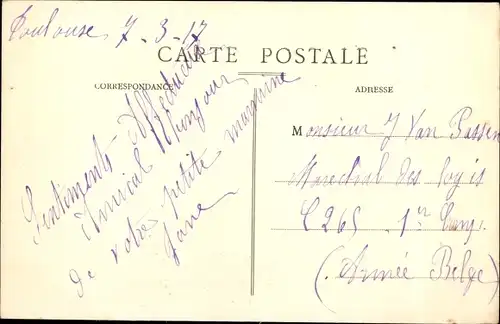 Toulouse 7-3-17
CARTE POSTALE
CORRESPONDANCE
ADRESSE
Sentiments affectueux
Amical bonjour
de votre petite marraine
Jane
Monsieur J Van Bassen
Marechal des logis
C265 1er
(Armée Belge)